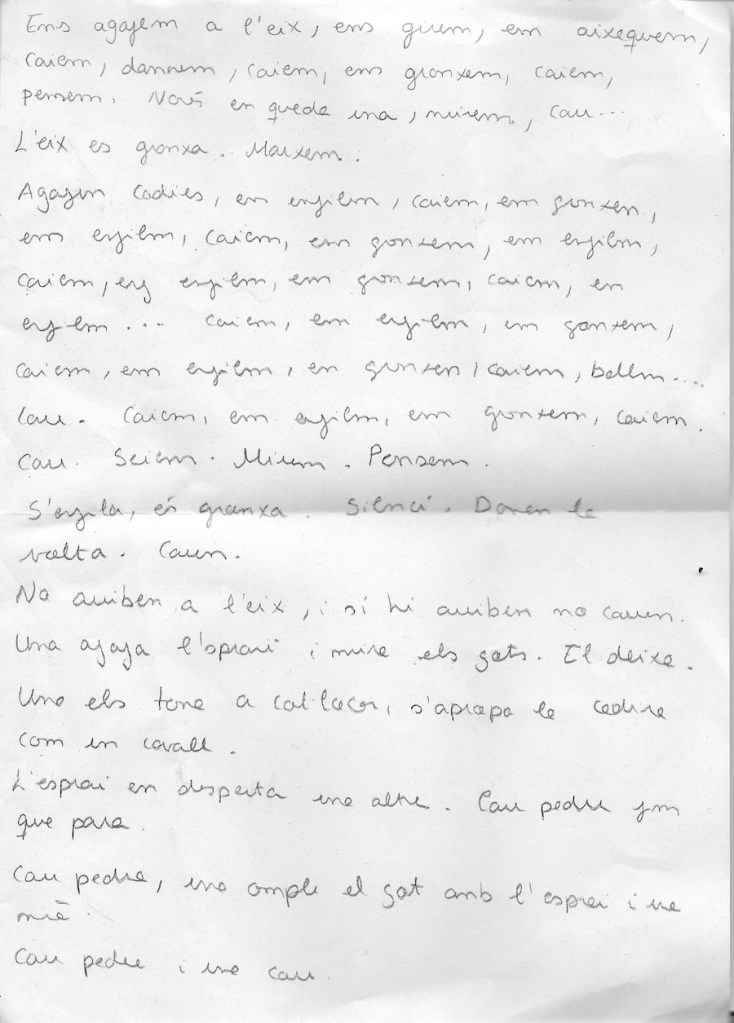 Ens agafem a l'eix, ens girem, em aixequem,
caiem, dannem, caiem, ens gronxem, caiem,
pensem. Només en queda una, mirem, cau...
L'eix es gronxa. Marxem.
Agafem cadires, em enfilm, caiem, em gronxen,
ens enfilm, caiem, em gronxem, em enfilm,
caiem, enfilm, em gronxem, caiem, en
... caiem, em enfilm, em gronxem,
caiem, em enfilm, en gronxen, caiem, ballm....
Cau. Caiem, em enfilm, em gronxem, caiem.
Cau. Seiem. Mirem. Pensem.
S'enfila, és gronxa. Silenci. Donen la
volta. Cauen.
No arriben a l'eix, i si hi arriben no cauen.
Una agafa l'sprai i mira els gots. El deixa.
Una els torna a col·locar, s'apropa la cadira
com un cavall.
L'esprai en desperta una altre. Cau pedra fins
que para.
Cau pedra, una omple el got amb l'esprai i una
mià.
Cau pedra i una cau.